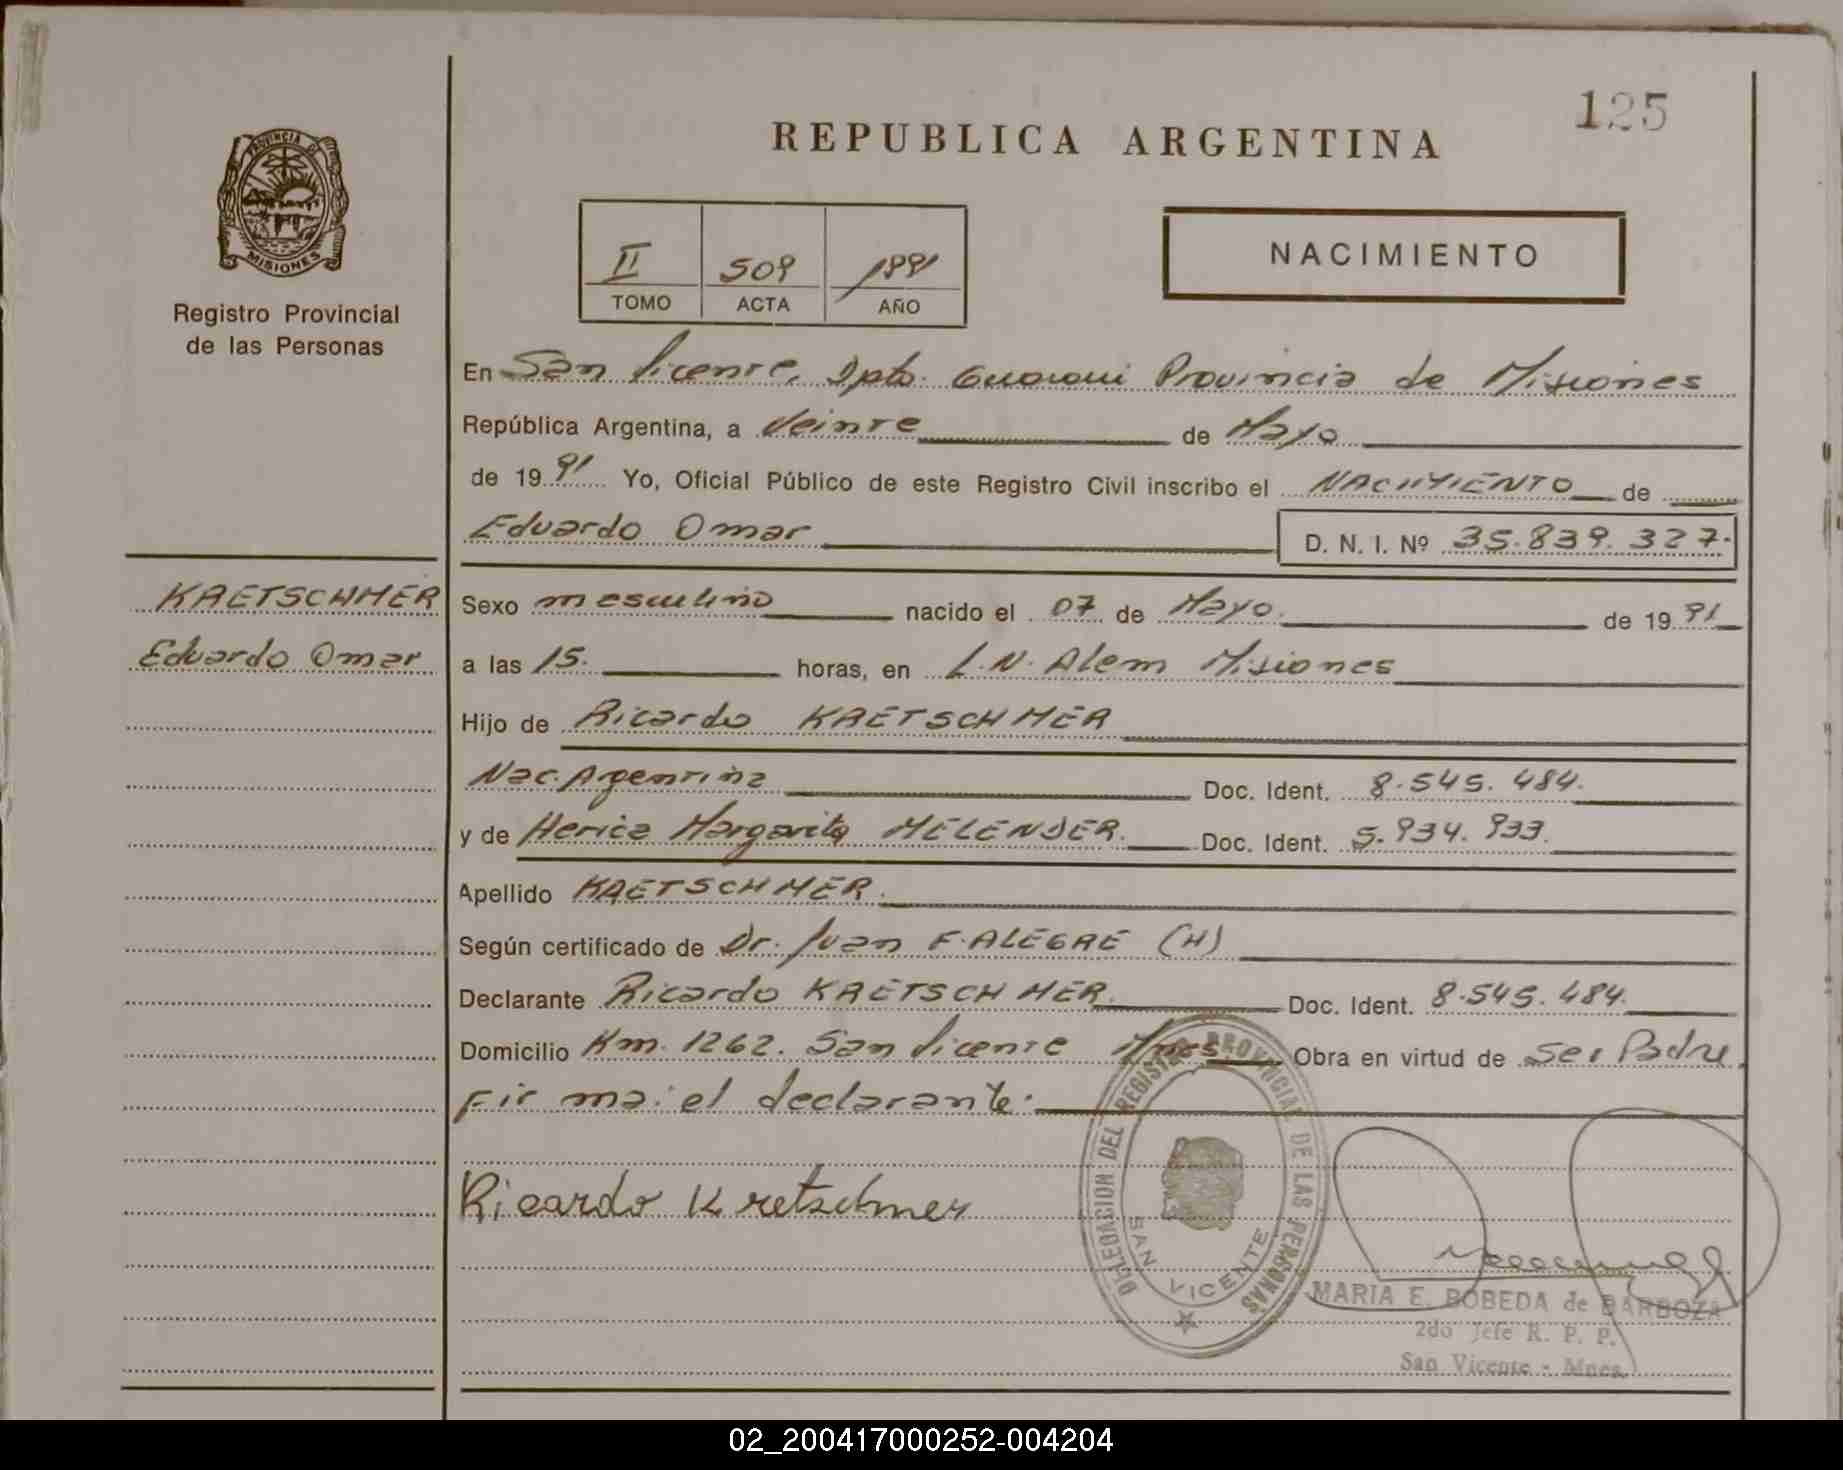 125
REPUBLICA ARGENTINA
PROVINCIA DE MISIONES
Registro Provincial
de las Personas
II 509 1991
TOMO ACTA AÑO
NACIMIENTO
En San Vicente, Dpto. Guarani Provincia de Misiones
República Argentina, a Veinte de Mayo
de 1991 Yo, Oficial Público de este Registro Civil inscribo el NACIMIENTO de
Eduardo Omar D. N. I. Nº 35.839.327.
KRETSCHMER
Eduardo Omar
Sexo masculino nacido el 07 de Mayo. de 1991
a las 15. horas, en L.N. Alem Misiones
Hijo de Ricardo KRETSCHMER
Nac. Argentina Doc. Ident. 8.545.484.
y de Herica Margarita MELENDER. Doc. Ident. 5.934.933.
Apellido KRETSCHMER.
Según certificado de Dr. Juan F. ALEGRE (H)
Declarante Ricardo KRETSCHMER. Doc. Ident. 8.545.484.
Domicilio Km. 1262. San Vicente Mnes Obra en virtud de ser Padre.
Firma: el declarante.
Ricardo Kretschmer
DELEGACION DEL REGISTRO PROVINCIAL DE LAS PERSONAS
SAN VICENTE
MARIA E. BOBEDA de BARBOZA
2do Jefe R. P. P.
San Vicente - Mnes.
02_200417000252-004204